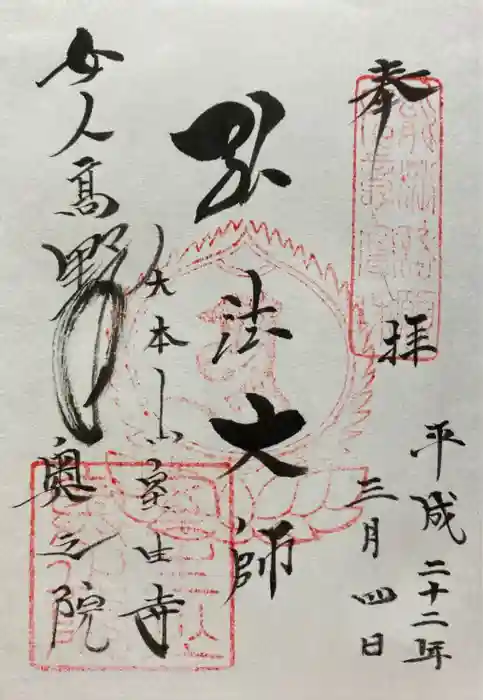 奉拝
平成二十二年
三月四日
弘法大師
大本山室生寺
女人高野
奥之院